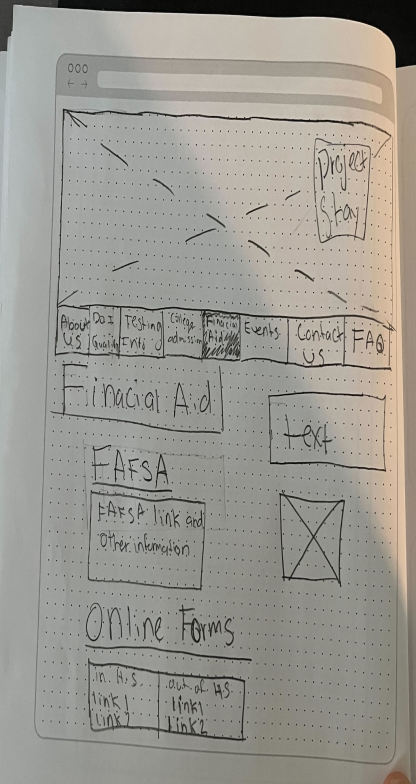 Project
Stay
About Us
Do I Qualify
Testing Info
College admission
Finacial Aid
Events
Contact Us
FAQ
Finacial Aid
text
FAFSA
FAFSA link and
other information
Online Forms
in H.S.
link 1
link 2
out of H.S.
link 1
link 2